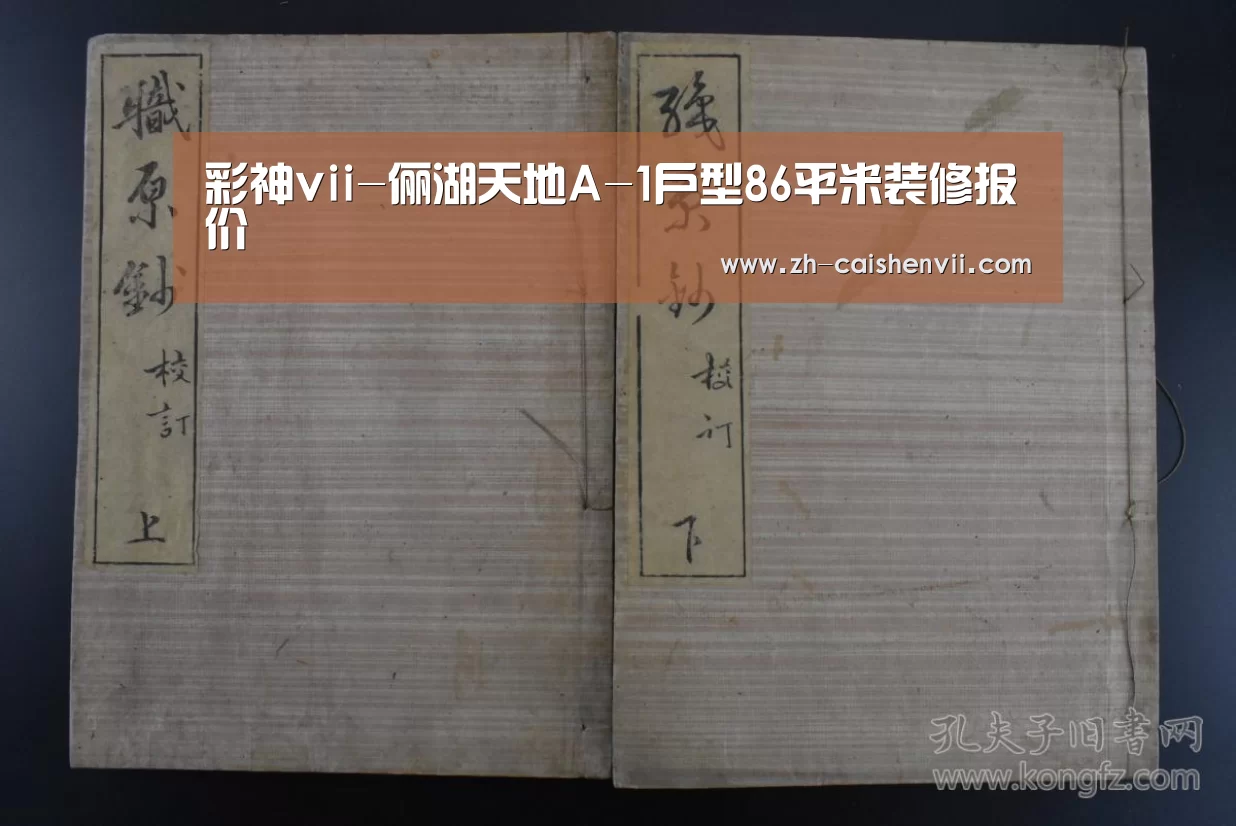 職原鈔
校訂
上
彩神vii-俪湖天地A-1户型86平米装修报
价
www.zh-caishenvii.com
职原鈔
校訂
下
孔夫子旧书网
www.kongfz.com